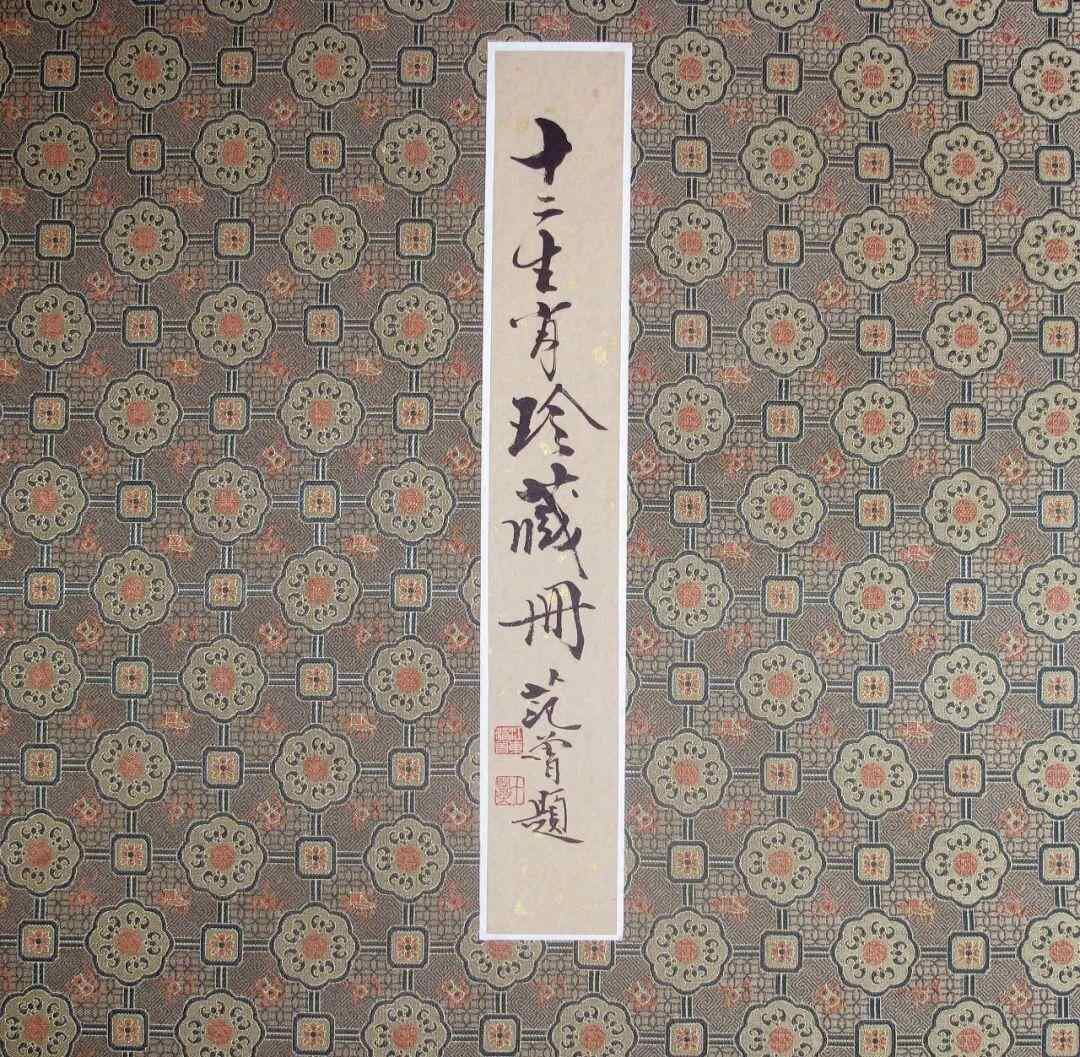 十二生肖珍藏冊范曾題